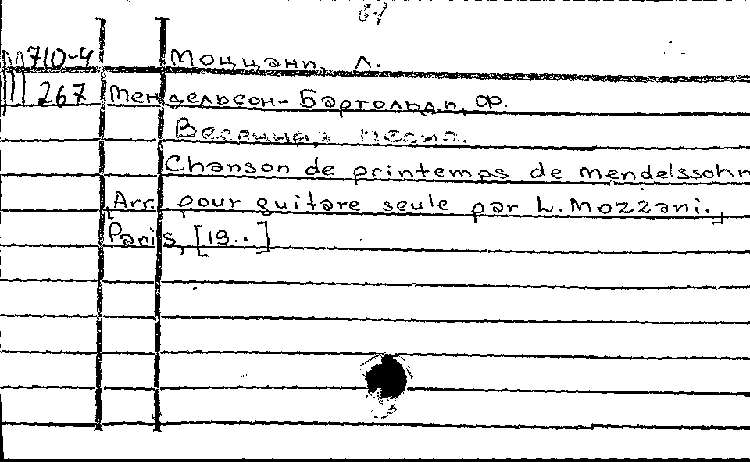 М710-4 Моццани, Л.
III 267 Мендельсон-Бартольди, Ф.
Весенняя песня.
Chanson de printemps de Mendelssohn
[Arr. pour guitare seule par L. Mozzani.,]
Paris, [19..]